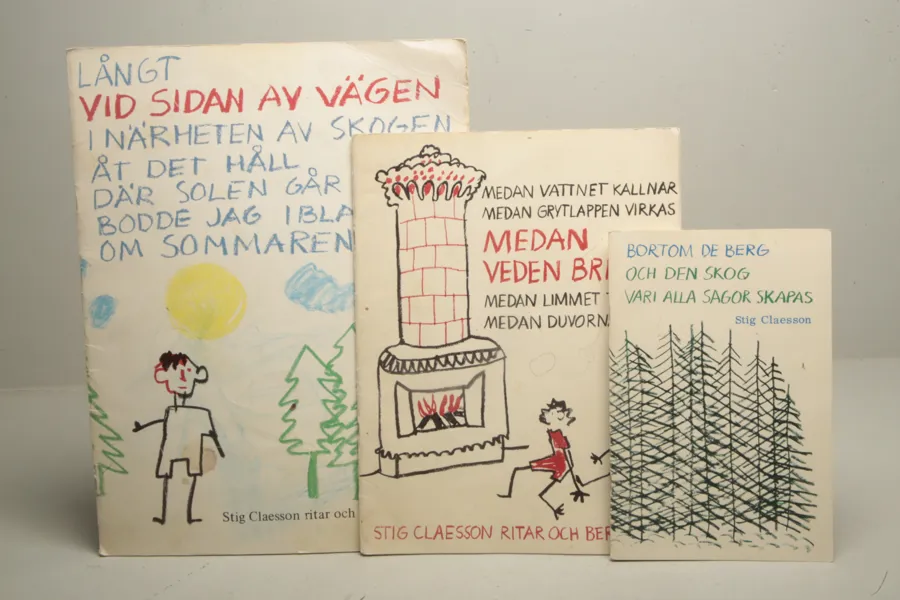 LÅNGT
VID SIDAN AV VÄGEN
I NÄRHETEN AV SKOGEN
ÅT DET HÅLL
DÄR SOLEN GÅR
BODDE JAG IBLA
OM SOMMAREN
Stig Claesson ritar och
MEDAN VATTNET KALLNAR
MEDAN GRYTLAPPEN VIRKAS
MEDAN
VEDEN BRI
MEDAN LIMMET T
MEDAN DUVORN
STIG CLAESSON RITAR OCH BER
BORTOM DE BERG
OCH DEN SKOG
VARI ALLA SAGOR SKAPAS
Stig Claesson